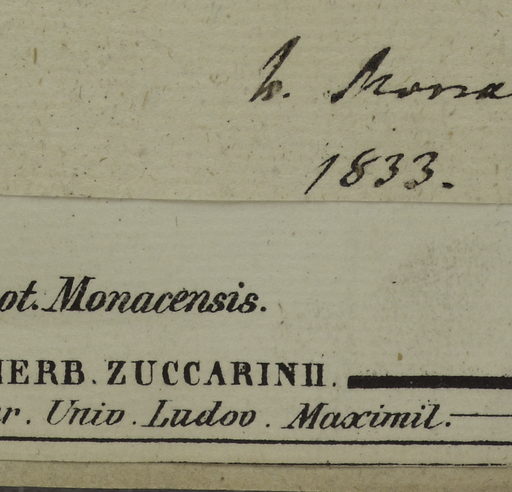 h. Mona
1833.
ot. Monacensis.
HERB. ZUCCARINII.
r. Univ. Ludov. Maximil.